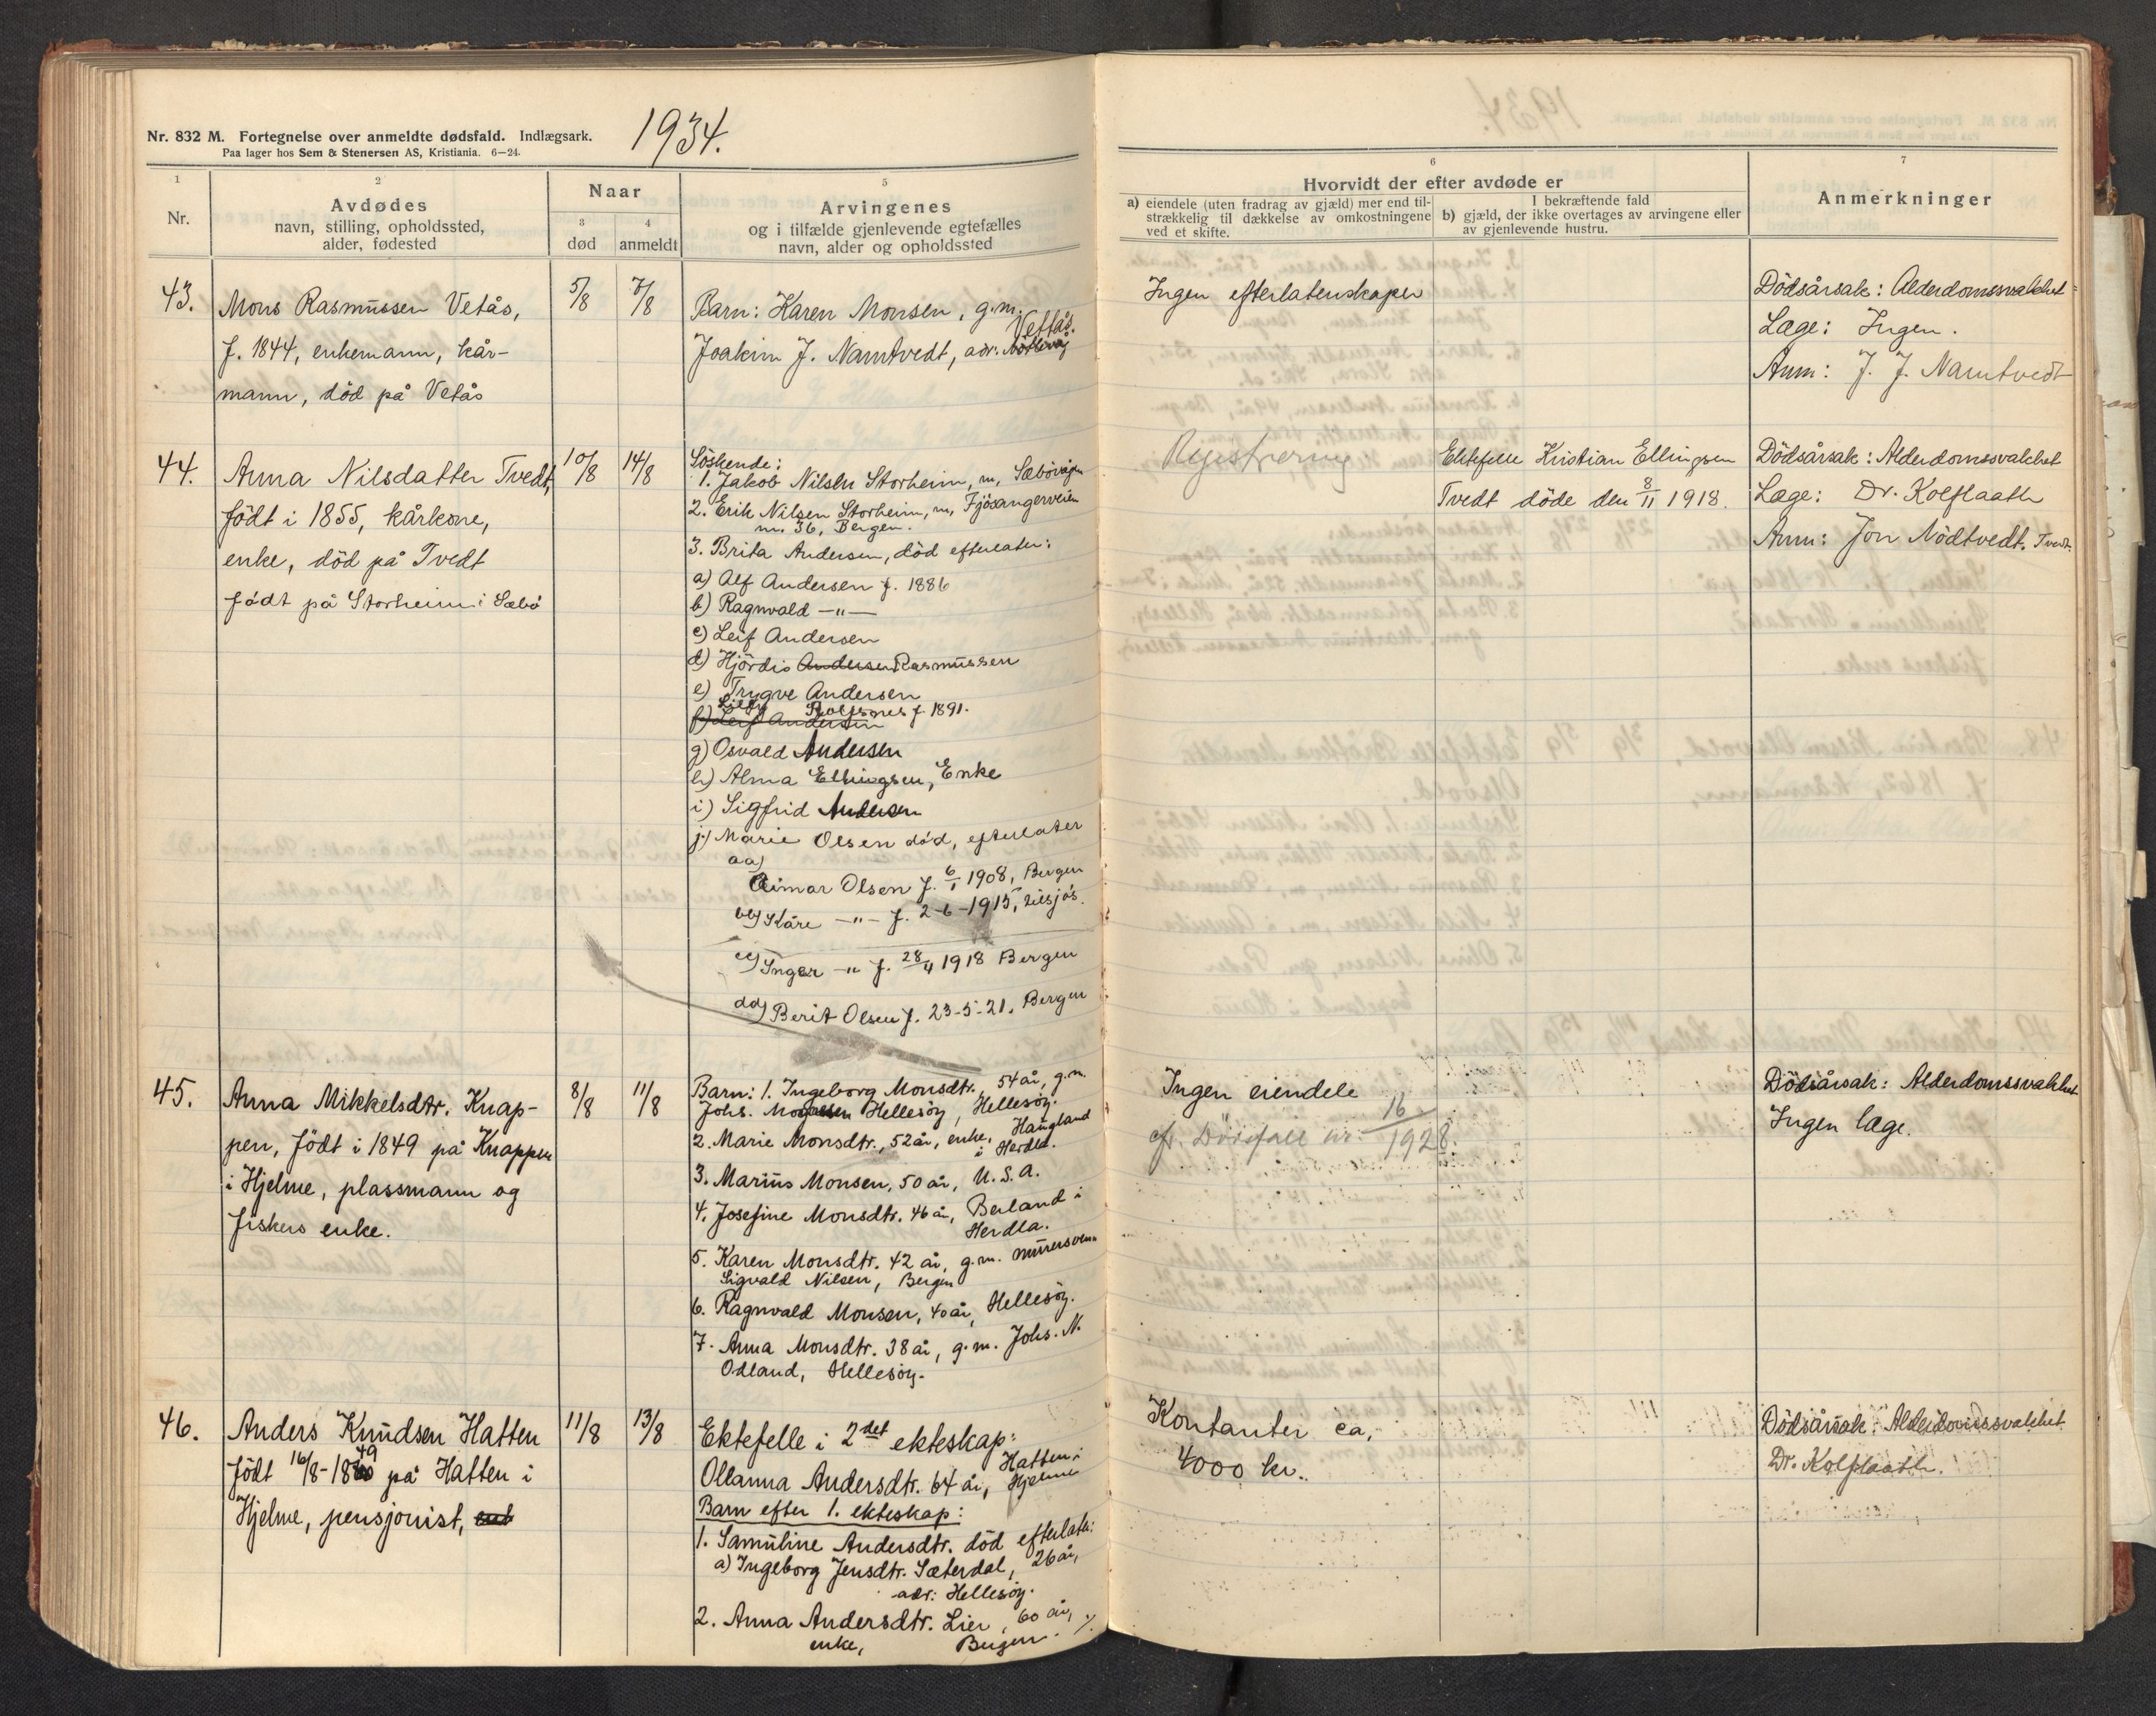 Nr. 832 M. Fortegnelse over anmeldte dødsfald. Indlægsark.
Paa lager hos Sem & Stenersen AS, Kristiania. 6—24.
1934.
1
Nr.
2
Avdødes
navn, stilling, opholdssted,
alder, fødested
Naar
3
død
4
anmeldt
5
Arvingenes
og i tilfælde gjenlevende egtefælles
navn, alder og opholdssted
6
Hvorvidt der efter avdøde er
a) eiendele (uten fradrag av gjæld) mer end til-
strækkelig til dækkelse av omkostningene
ved et skifte.
I bekræftende fald
b) gjæld, der ikke overtages av arvingene eller
av gjenlevende hustru.
7
Anmerkninger
43.
Mons Rasmussen Vetås,
f. 1844, enkemann, kår-
mann, död på Vetås
5/8
7/8
Barn: Karen Monsen, g.m.
Vettås.
Joakim J. Namtvedt, adr.
Ingen efterlatenskaper
Dödsårsak: Alderdomssvakhet
Læge: Ingen.
Anm: J. J. Namtvedt
44.
Anna Nilsdatter Tvedt,
födt i 1855, kårkone,
enke, död på Tvedt
födt på Storheim i Sæbö
10/8
14/8
Söskende:
1. Jakob Nilsen Storheim, m, Sæbövågen
2. Erik Nilsen Storheim, m, Fjösangerveien
nr. 36, Bergen.
3. Brita Andersen, död efterlater:
a) Alf Andersen f. 1886
b) Ragnvald —"—
c) Leif Andersen
d) Hjördis Andersen Rasmussen
e) Trygve Andersen
Lilly Rolfsnes f. 1891.
f) Leif Andersen
g) Osvald Andersen
h) Alma Ellingsen, Enke
i) Sigfrid Andersen
j) Marie Olsen död, efterlater
aa)
Eimar Olsen f. 6/1 1908, Bergen
bb) Kåre —"— f. 2-6-1915, tilsjös.
cc) Inger —"— f. 28/4 1918 Bergen
dd) Berit Olsen f. 23-5-21. Bergen
Registrering
Ektefelle Kristian Ellingsen
Tvedt döde den 8/11 1918.
Dödsårsak: Alderdomssvakhet
Læge: Dr. Kolflaath
Anm: Jon Nödtvedt. Tvedt.
45.
Anna Mikkelsdtr. Knap-
pen, födt i 1849 på Knappen
i Hjelme, plassmann og
fiskers enke.
8/8
11/8
Barn: 1. Ingeborg Monsdtr., 54 år, g.m.
Johs. Mogensen Hellesöy, Hellesöy.
2. Marie Monsdtr., 52 år, enke, Haugland
i Herdla.
3. Marius Monsen, 50 år, U.S.A.
4. Josefine Monsdtr. 46 år, Berland i
Herdla.
5. Karen Monsdtr. 42 år, g.m. murersvenn
Sigvald Nilsen, Bergen
6. Ragnvald Monsen, 40 år, Hellesöy.
7. Anna Monsdtr. 38 år, g.m. Johs. N.
Odland, Hellesöy.
Ingen eiendele
cfr. Dödsfall nr. 16/1928.
Dödsårsak: Alderdomssvakhet
Ingen læge.
46.
Anders Knudsen Hatten
födt 16/8-1849 på Hatten i
Hjelme, pensjonist,
11/8
13/8
Ektefelle i 2det ekteskap:
Ollanna Andersdtr. 64 år, Hatten i
Hjelme
Barn efter 1. ekteskap:
1. Samuline Andersdtr. död efterlater:
a) Ingeborg Jensdtr. Sæterdal, 26 år,
adr: Hellesöy.
2. Anna Andersdtr. Lier, 60 år,
enke, Bergen. ./.
Kontanter ca.
4000 kr.
Dödsårsak: Alderdomssvakhet
Dr. Kolflaath.